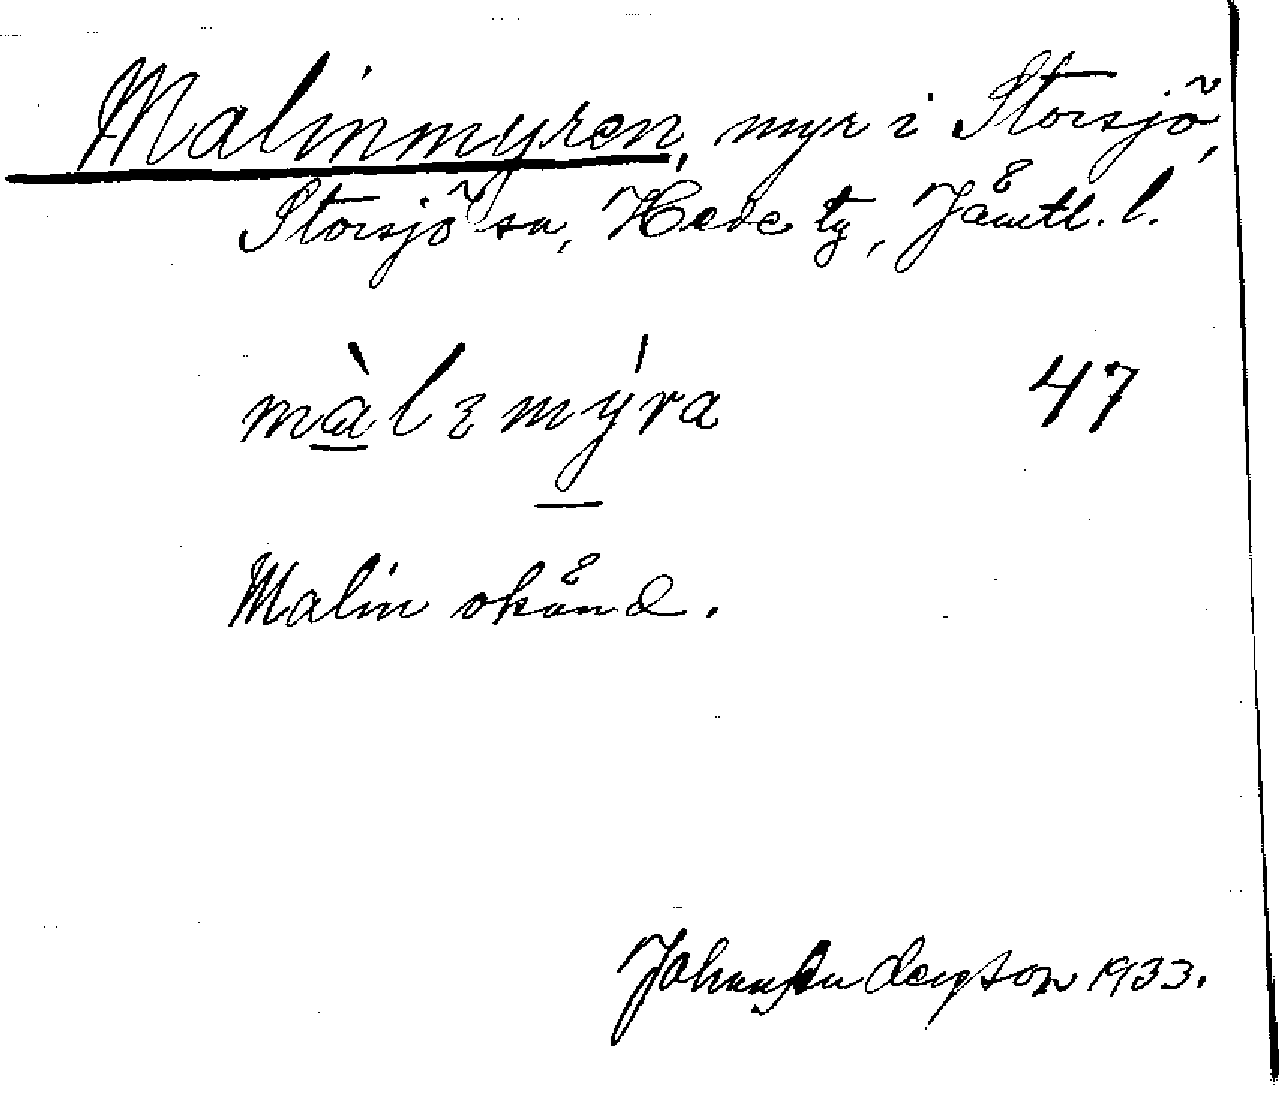 Malinmyren, myr i Storsjö,
Storsjö sn, Hede tg, Jämtl. l.
màlɛmýra 47
Malin okänd.
Johan Anderzson 1933.